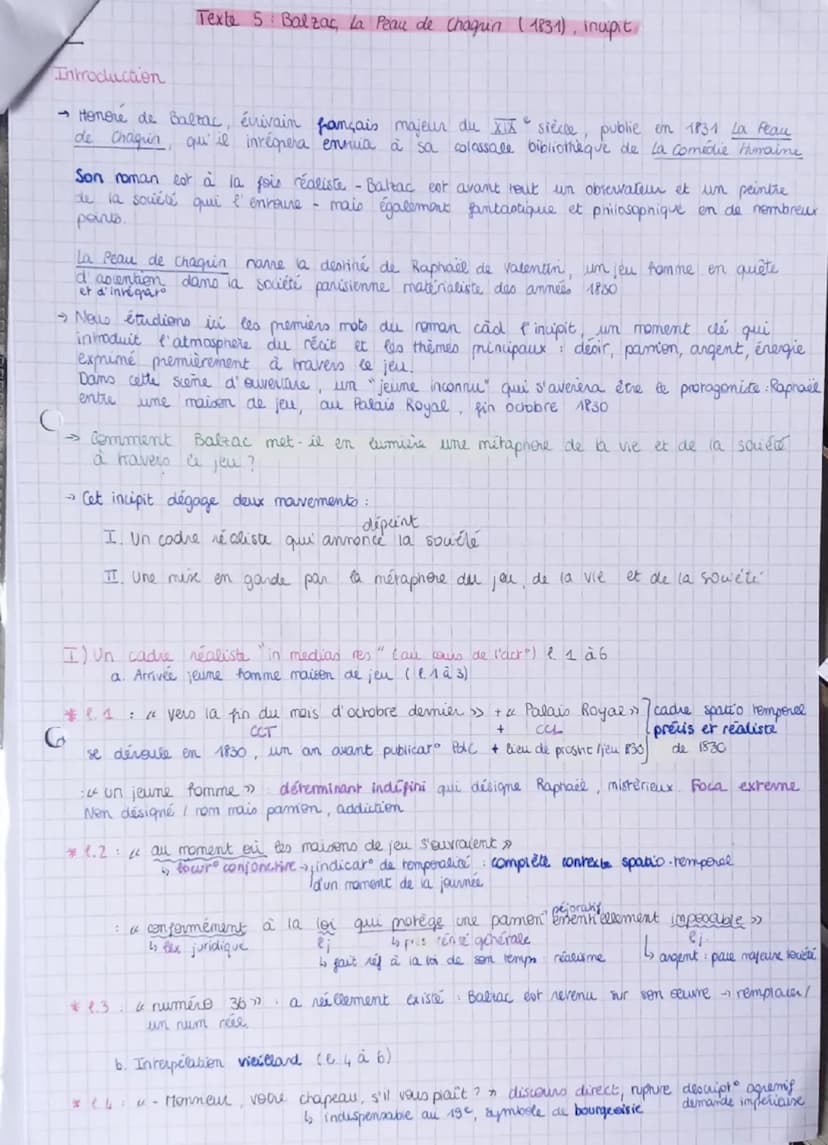 Texte 5 : Balzac, La Peau de Chagrin (1831), incipit
Introduction
→ Honoré de Balzac, écrivain français majeur du XIXe siècle, publie en 1831 La Peau
de Chagrin, qu'il intégrera ensuite à sa colossale bibliothèque de La Comédie Humaine
Son roman est à la fois réaliste - Balzac est avant tout un observateur et un peintre
de la société qui l'entoure - mais également fantastique et philosophique en de nombreux
points.
La Peau de Chagrin narre la destiné de Raphaël de Valentin, un jeu homme en quête
d'ascension dans la société parisienne matérialiste des années 1830
et d'intégrat°
→ Nous étudions ici les premiers mots du roman càd l'incipit, un moment clé qui
introduit l'atmosphère du récit et les thèmes principaux : désir, passion, argent, énergie
exprimé premièrement à travers le jeu.
Dans cette scène d'ouverture, un "jeune inconnu" qui s'avèrera être le protagoniste : Raphaël
entre une maison de jeu, au Palais Royal, fin octobre 1830
→ Comment Balzac met-il en lumière une métaphore de la vie et de la société
à travers le jeu ?
→ Cet incipit dégage deux mouvements :
dépeint
I. Un cadre réaliste qui annonce la société
II. Une mise en garde par la métaphore du jeu, de la vie et de la société
I) Un cadre réaliste "in medias res" (au cours de l'act°) l 1 à 6
a. Arrivée jeune homme maison de jeu (l 1 à 3)
* l.1 : « vers la fin du mois d'octobre dernier » + « Palais Royal » cadre spatio temporel
CCT + CCL précis et réaliste
se déroule en 1830, un an avant publicat° PdC + lieu de prostit°/jeu 1830 de 1830
: « un jeune homme » déterminant indéfini qui désigne Raphaël, mistérieux. Foca externe
Non désigné / nom mais passion, addiction
* l.2 : « au moment où les maisons de jeu s'ouvraient »
↳ locut° conjonctive → indicat° de temporalité : complète contexte spatio-temporel
d'un moment de la journée
péjoratif
: « conformément à la loi qui protège une passion essentiellement imposable »
↳ lex juridique ↳ vérité générale
↳ fait réf à la loi de son temps réalisme ↳ argent : place majeure société
* l.3 : « numéro 36 » : a réellement existé. Balzac est revenu sur son œuvre → remplacer/
un num réel
b. Interpélation vieillard (l 4 à 6)
* l 4 : « - Monsieur, votre chapeau, s'il vous plaît ? » discours direct, rupture descript° agressif
↳ indispensable au 19e, symbole du bourgeoisie demande impérieuse